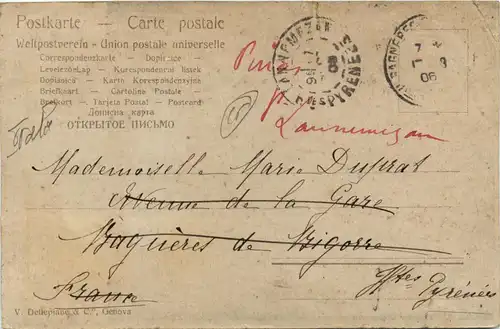 Postkarte — Carte postale
Weltpostverein - Union postale universelle
Correspondenzkarte — Dopisnice
Levelező-Lap — Kurespondencni listek
Dopisnica — Karta Korespondencyjna
Briefkaart — Cartolina Postale
Brefkort — Tarjeta Postal — Postcard
Дописна карта
ОТКРЫТОЕ ПИСЬМО
LANNEMEZAN
HTES PYRÉNÉES
BAGNERES
7
06
Lannemezan
Mademoiselle Marie Duprat
Avenue de la Gare
Bagnères de Bigorre
Htes Pyrénées
France
V. Dellepiane & C.º, Genova